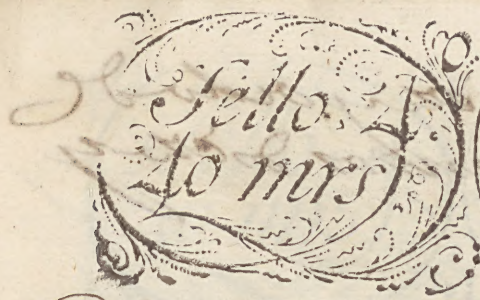 Sello. 4.
40 mrs